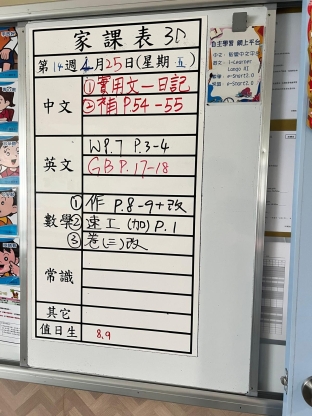 家課表 3D
第14週 4月25日(星期五)
中文
①實用文一日記
②補 P.54-55
英文
WP.7 P.3-4
GB P.17-18
數學
① 作 P.8-9+改
② 速工(加)P.1
③ 卷(三)改
常識
其它
值日生 8,9
自主學習 網上平台